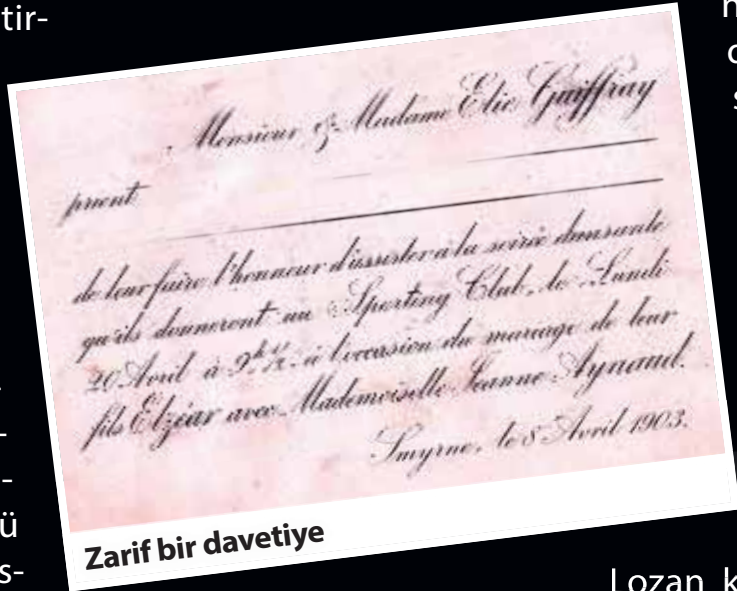 tir-
Monsieur & Madame Elie Guiffray
prient
de leur faire l'honneur d'assister à la soirée dansante
qu'ils donneront au Sporting Club, le Lundi
20 Avril à 9h ½ à l'occasion du mariage de leur
fils Elzéar avec Mademoiselle Jeanne Aynaud.
Smyrne, le 8 Avril 1903.
Zarif bir davetiye
ü
s-
Lozan k